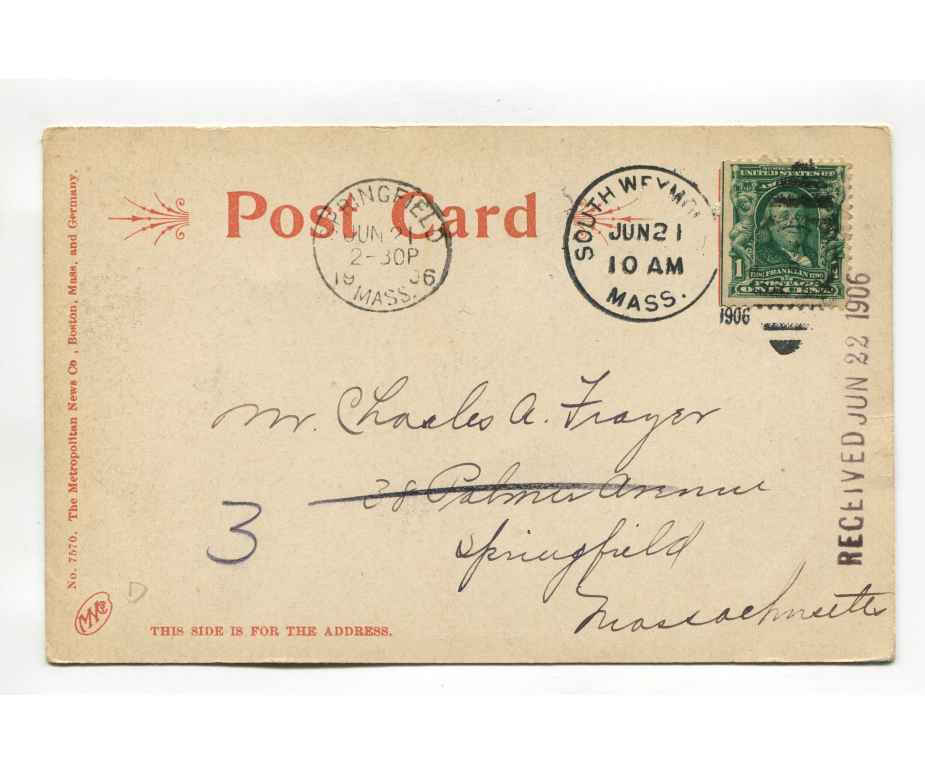 Post Card
SPRINGFIELD
JUN 21
2-30P
19 06
MASS.
SOUTH WEYMO
JUN 21
10 AM
MASS.
1906
UNITED STATES OF
1 FRANKLIN 1790
POSTAGE
RECEIVED JUN 22 1906
Mr. Charles A. Frayer
38 Palmer Avenue
Springfield
Massachusetts
3
D
No. 7570. The Metropolitan News Co., Boston, Mass. and Germany.
THIS SIDE IS FOR THE ADDRESS.